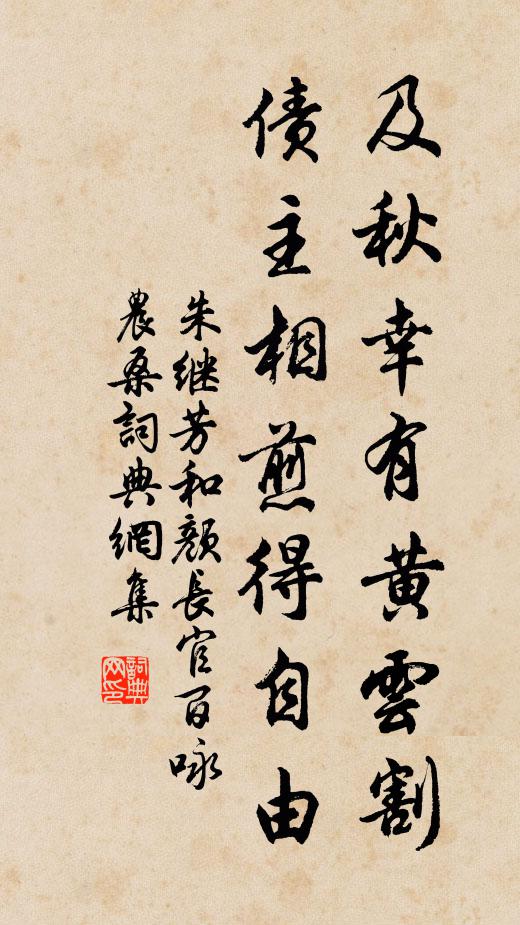 及秋幸有黄雲割
債主相煎得自由
朱继芳和顔長官百咏
農桑詞典網集
詞典网印